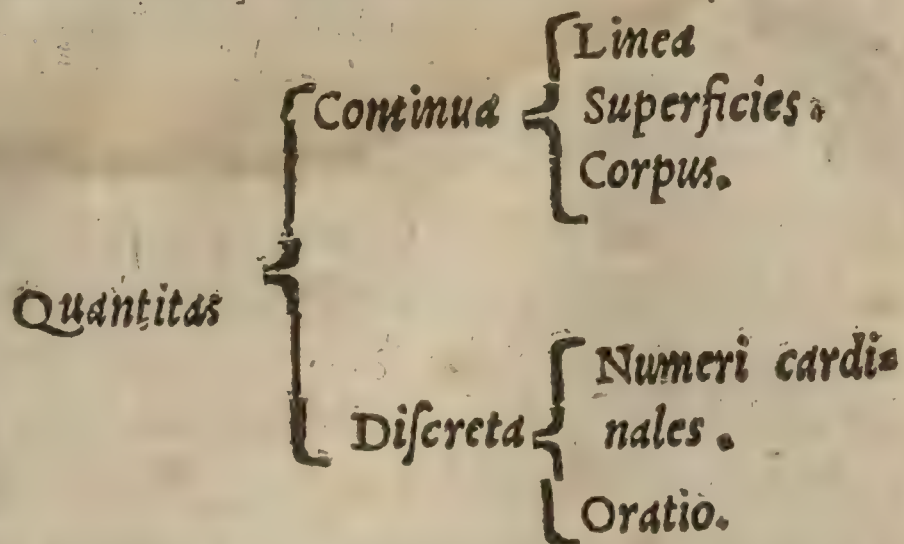 Quantitas
Continua
Linea
Superficies.
Corpus.
Diſcreta
Numeri cardi=
nales.
Oratio.